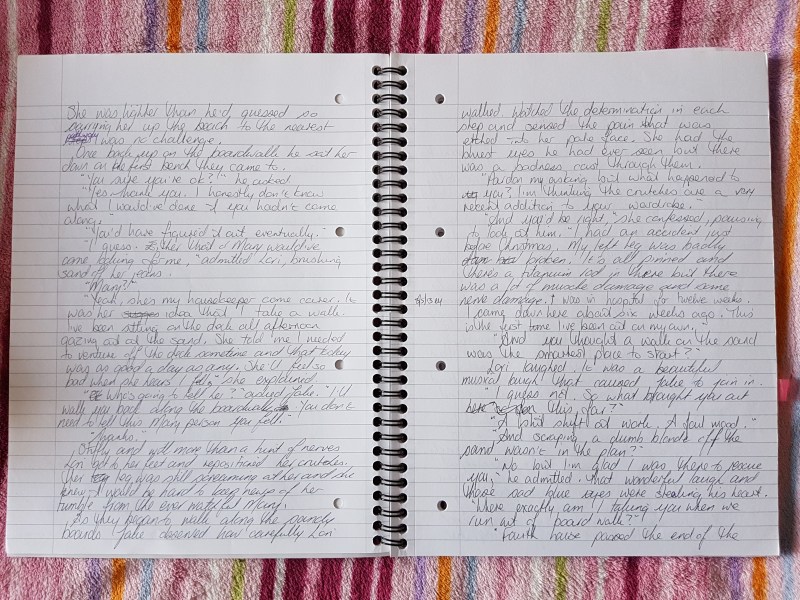 She was lighter than he'd guessed so
carrying her up the beach to the nearest
was no challenge.
Once back up on the boardwalk he set her
down on the first bench they came to.
"You sure you're ok?" he asked.
"Yes thank you. I honestly don't know
what I would've done if you hadn't come
along."
"You'd have figured it out, eventually."
"I guess. Either that or Mary would've
come looking for me," admitted Lori, brushing
sand off her jeans.
"Mary?"
"Yeah, she's my housekeeper come carer. It
was her idea that I take a walk.
I've been sitting on the deck all afternoon
gazing out at the sand. She told me I needed
to venture off the deck sometime and that today
was as good a day as any. She'll feel so
bad when she hears I fell," she explained.
"Who's going to tell her?" asked Jake. "I'll
walk you back along the boardwalk. You don't
need to tell this Mary person you fell."
"Thanks."
Stiffly and with more than a hint of nerves
Lori got to her feet and repositioned her crutches.
Her leg was still screaming at her and she
knew it would be hard to keep news of her
tumble from the ever watchful Mary.
As they began to walk along the sandy
boards Jake observed how carefully Lori
walked. Watched the determination in each
step and sensed the pain that was
etched into her pale face. She had the
bluest eyes he had ever seen but there
was a sadness cast through them.
"Pardon my asking but what happened to
you? I'm thinking the crutches are a very
recent addition to your wardrobe."
"And you'd be right," she confessed, pausing
to look at him. "I had an accident just
before Christmas. My left leg was badly
broken. It's all pinned and
there's a titanium rod in there but there
was a lot of muscle damage and some
nerve damage. I was in hospital for twelve weeks.
I came down here about six weeks ago. This
is the first time I've been out on my own."
"And you thought a walk on the sand
was the smartest place to start?"
Lori laughed. It was a beautiful
musical laugh that caused Jake to join in.
"I guess not. So what brought you out
this far?"
"A shit shift at work. A foul mood."
"And scraping a dumb blonde off the
sand wasn't in the plan?"
"No but I'm glad I was there to rescue
you," he admitted. That wonderful laugh and
those sad blue eyes were stealing his heart.
"Where exactly am I taking you when we
run out of board walk?"
"Fourth house passed the end of the